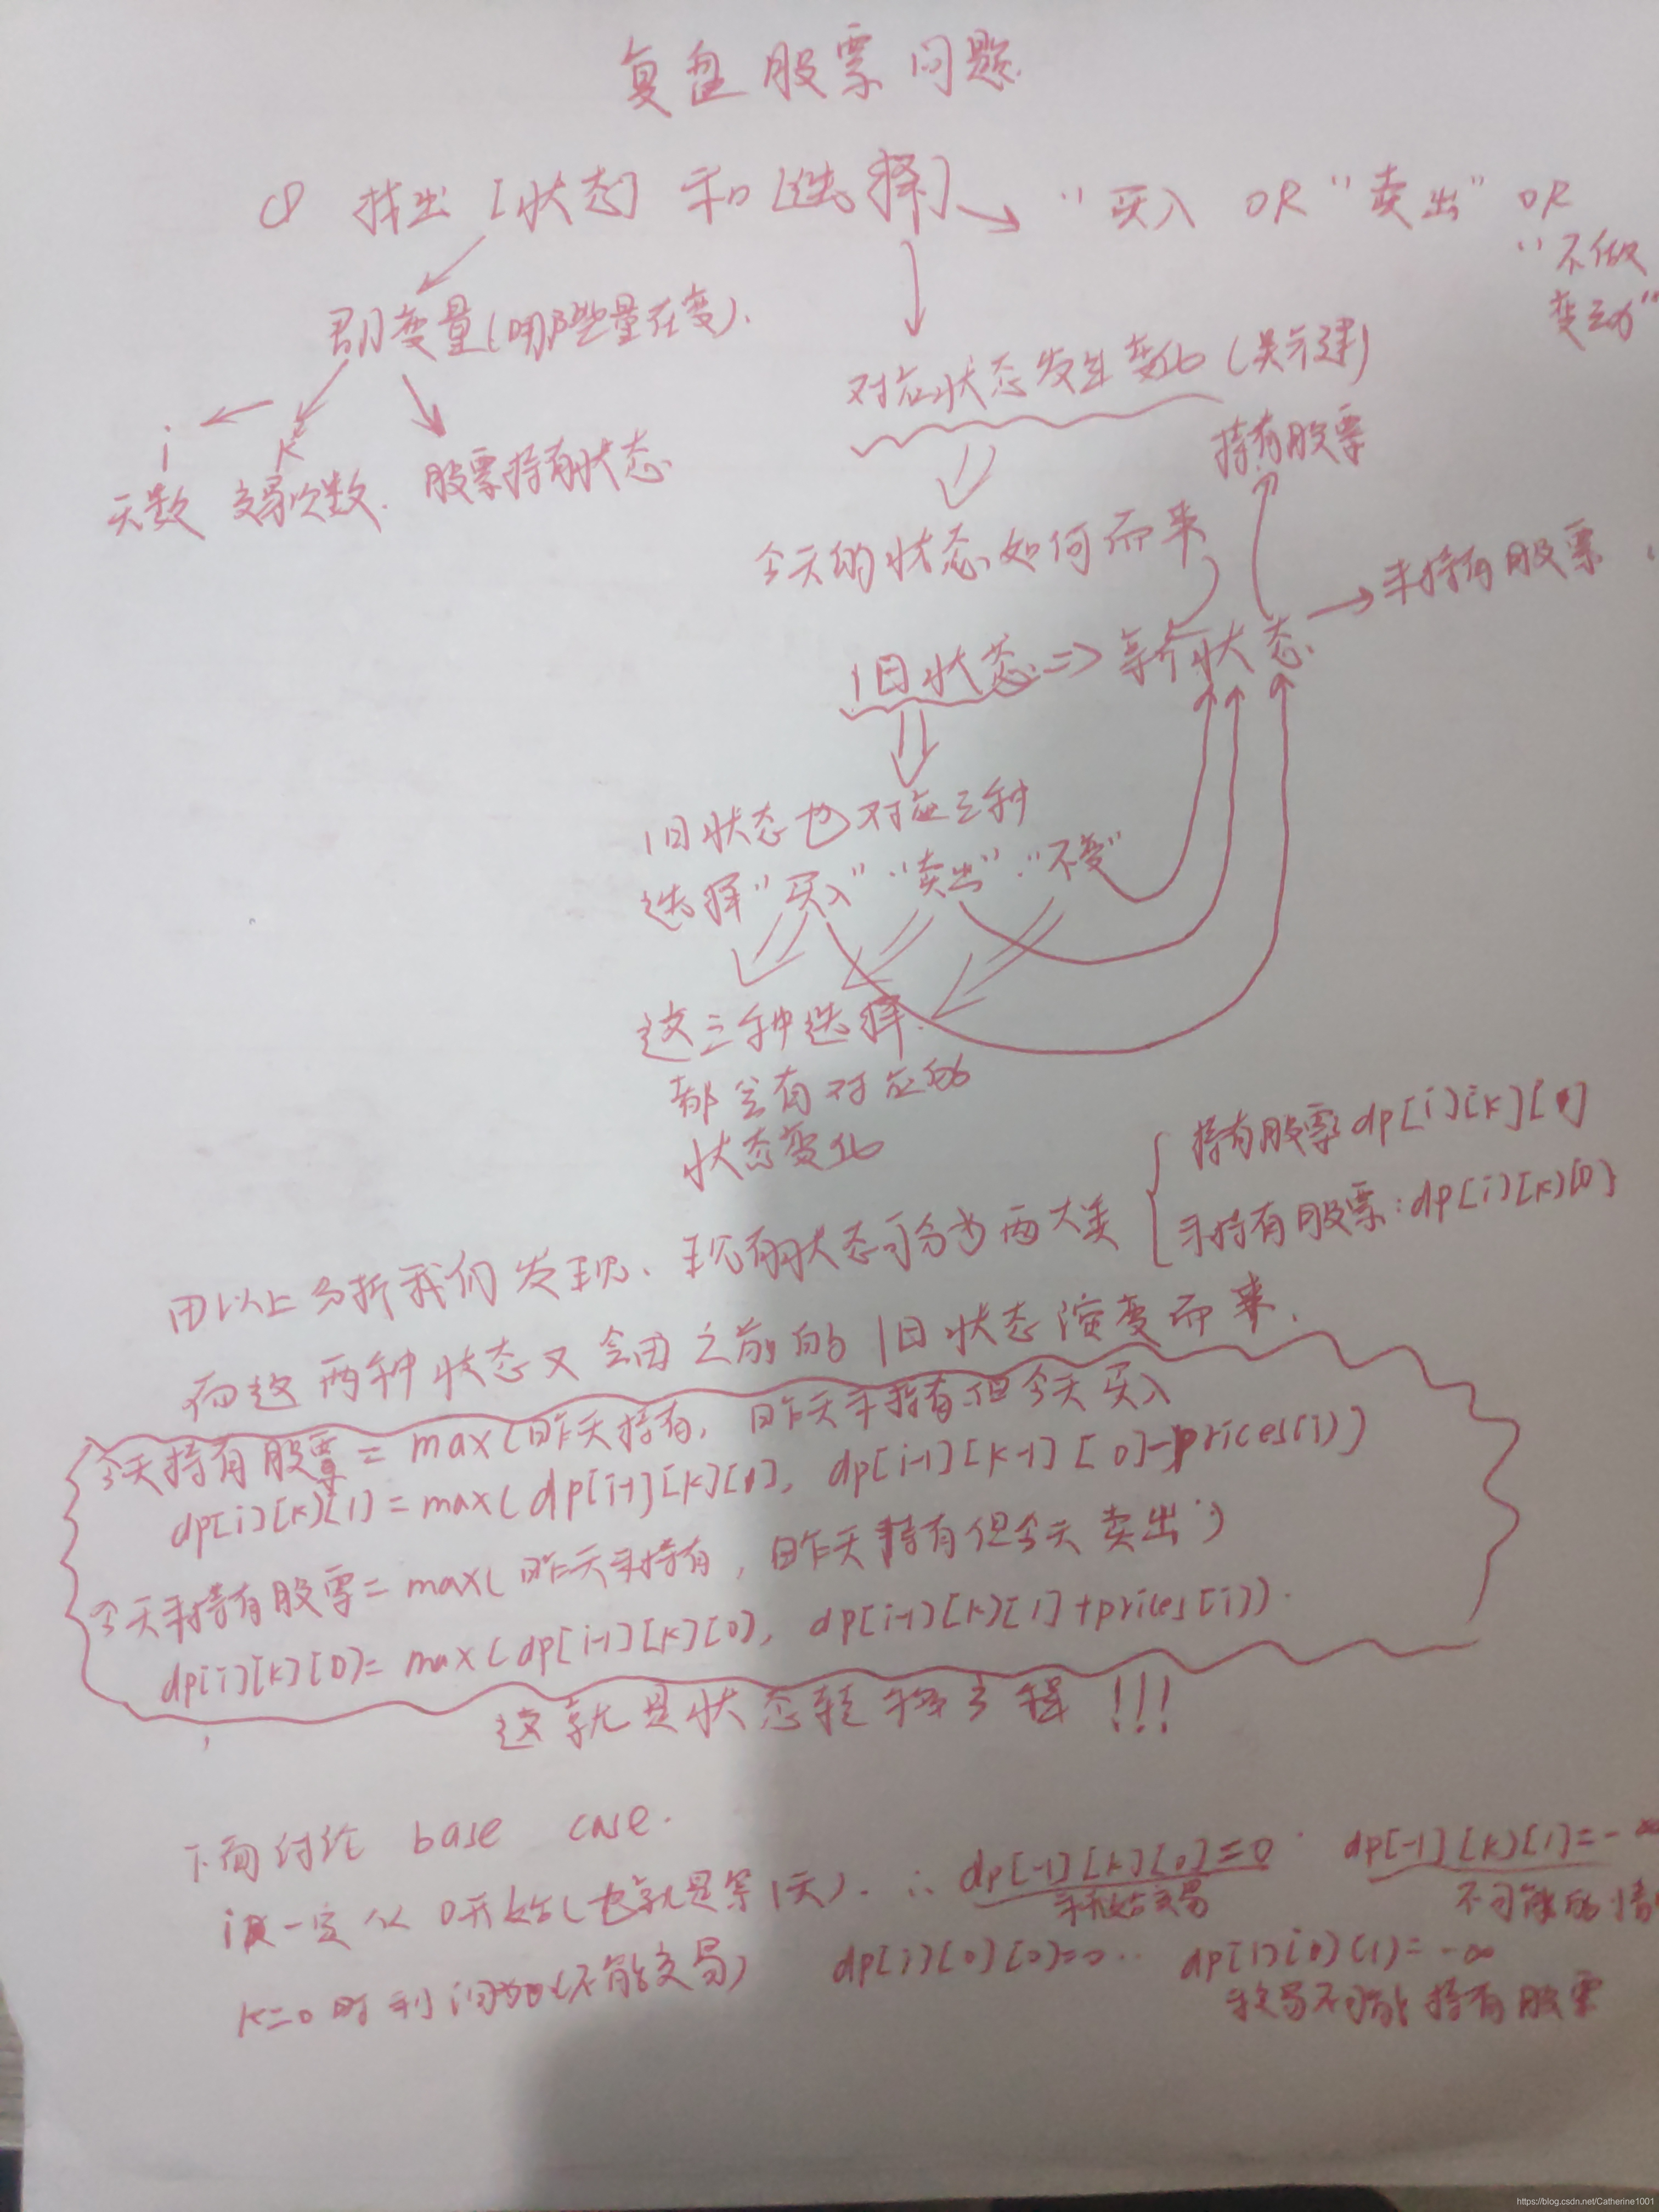 复盘股票问题
① 找出[状态]和[选择] → "买入 OR "卖出" OR
"不做
变动"
即变量(哪些量在变).
对应状态发生变化(关键)
i k
天数 交易次数. 股票持有状态
持有股票
今天的状态如何而来
未持有股票
旧状态 => 新状态
旧状态也对应三种
选择"买入" "卖出" "不变"
这三种选择
都会有对应的
状态变化
由以上分析我们发现、现有状态可分为两大类
持有股票 dp[i][k][1]
未持有股票:dp[i][k][0]
而这两种状态又会由之前的旧状态演变而来.
今天持有股票 = max(昨天持有, 昨天未持有但今天买入
dp[i][k][1] = max(dp[i-1][k][1], dp[i-1][k-1][0]-prices[i])
今天未持有股票 = max(昨天未持有, 昨天持有但今天卖出)
dp[i][k][0] = max(dp[i-1][k][0], dp[i-1][k][1]+prices[i]).
这就是状态转移方程!!!
下面讨论 base case.
i 一定从0开始(也就是第1天). ∴ dp[-1][k][0]=0 dp[-1][k][1]=-∞
未开始交易 不可能的情
k=0时利润为0(不能交易) dp[i][0][0]=0 dp[i][0][1]=-∞
不可能持有股票
https://blog.csdn.net/Catherine1001